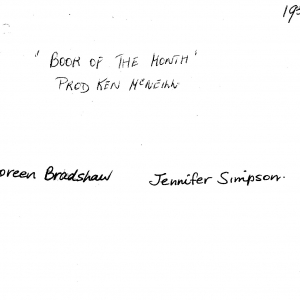 193
"BOOK OF THE MONTH"
PROD KEN McNEILL
oreen Bradshaw Jennifer Simpson.